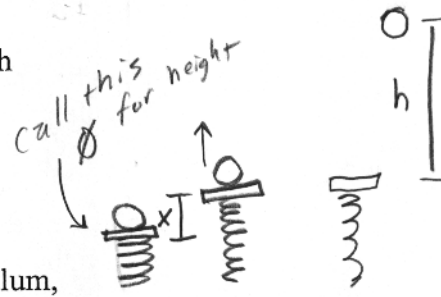 h
call this
Ø for height
x
h
lum,